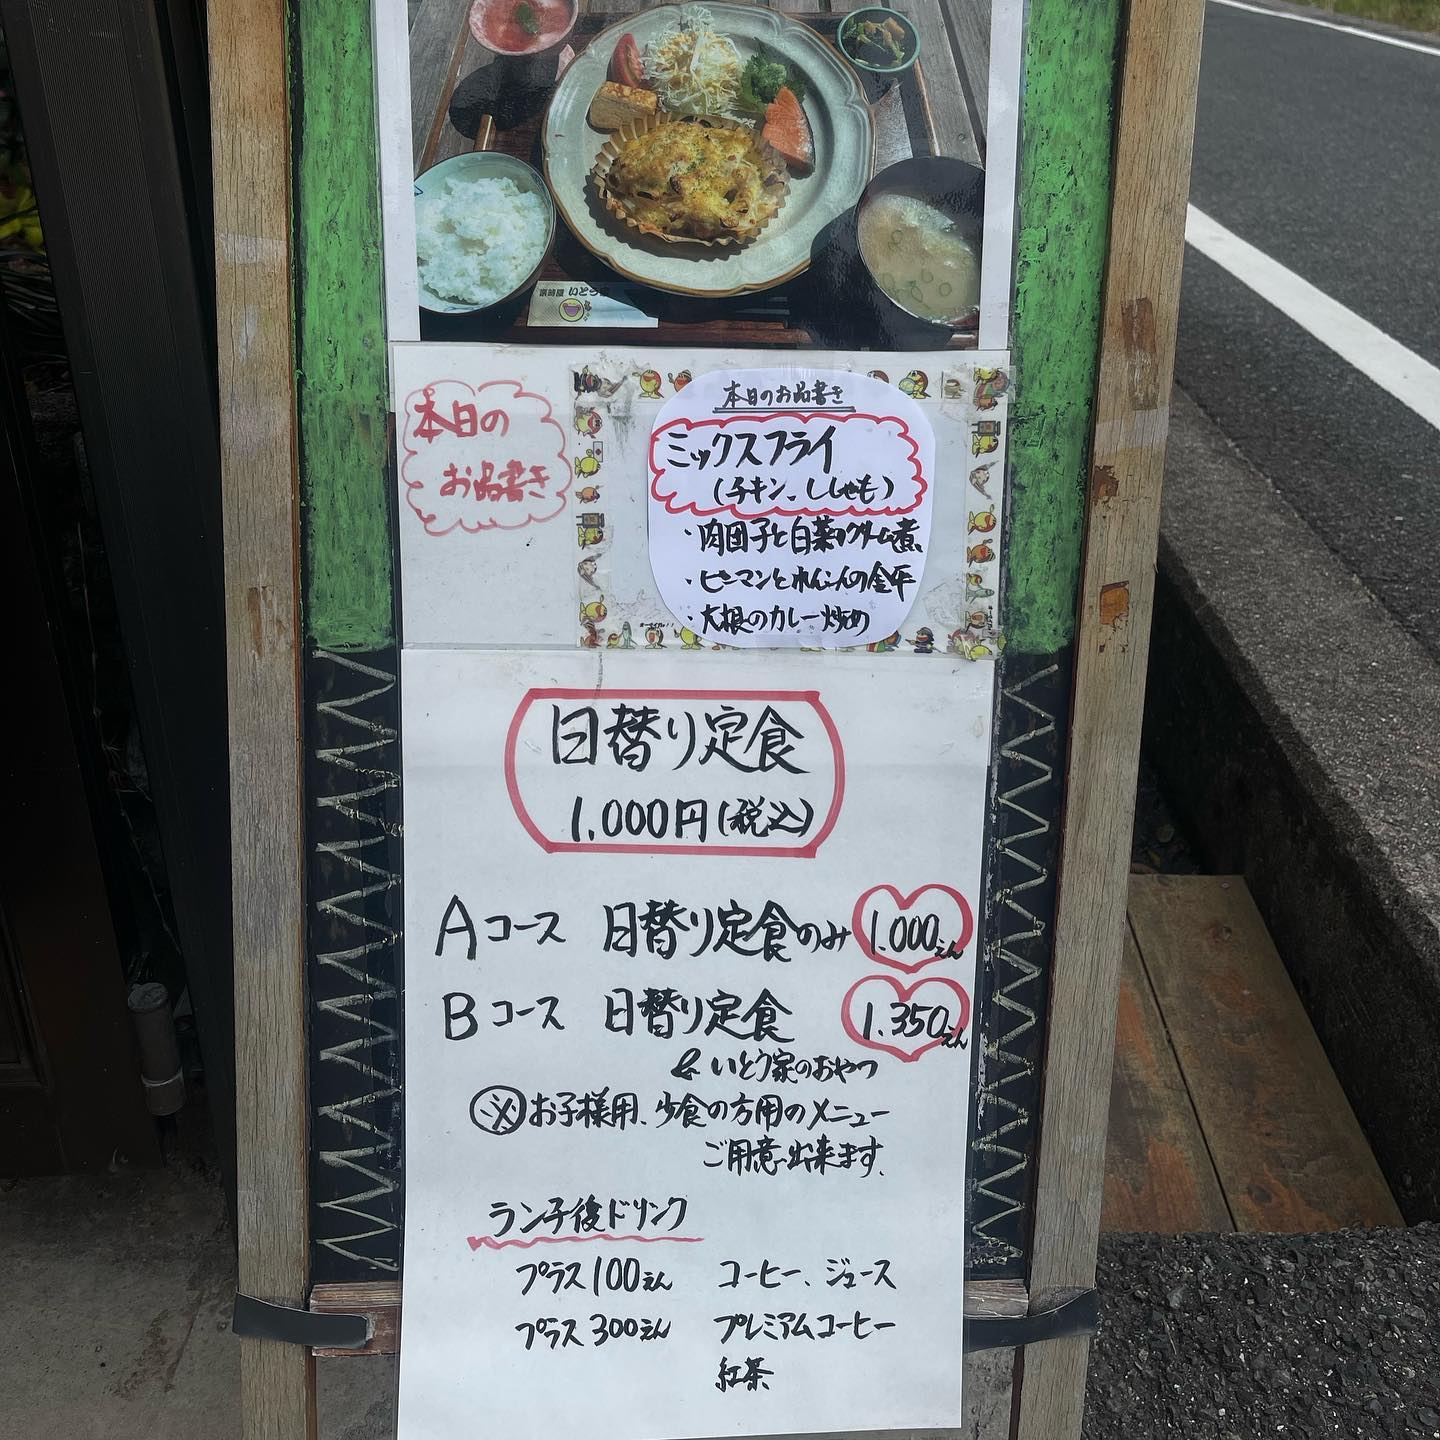 いとう家
本日の
お品書き
本日のお品書き
ミックスフライ
(チキン、ししゃも)
・肉団子と白菜のクリーム煮
・ピーマンとれんこんの金平
・大根のカレー炒め
日替り定食
1,000円(税込)
Aコース 日替り定食のみ 1,000えん
Bコース 日替り定食 1,350えん
& いとう家のおやつ
※お子様用、少食の方用のメニュー
ご用意出来ます。
ランチ後ドリンク
プラス100えん コーヒー、ジュース
プラス300えん プレミアムコーヒー
紅茶